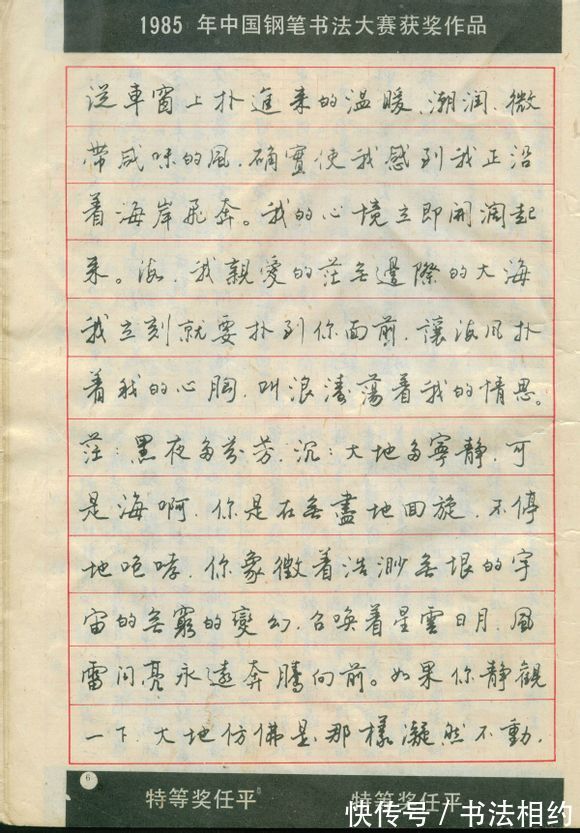 1985 年中国钢笔书法大赛获奖作品
從車窗上扑進来的温暖、潮润、微
带咸味的風、确實使我感到我正沿
着海岸飛奔。我的心境立即開阔起
来。海、我親愛的茫無邊際的大海
我立刻就要扑到你面前、讓海风扑
着我的心胸、叫浪涛荡着我的情思。
茫:黑夜多芬芳、沉:大地多寧静、可
是海啊、你是在無盡地回旋、不停
地咆哮、你象徵着浩渺無垠的宇
宙的無窮的變幻、召唤着星雲日月、風
雷闪亮永遠奔騰向前。如果你静觀
一下、大地仿佛是那樣凝然不動、
6
特等奖任平
特等奖任平
快传号/书法相约